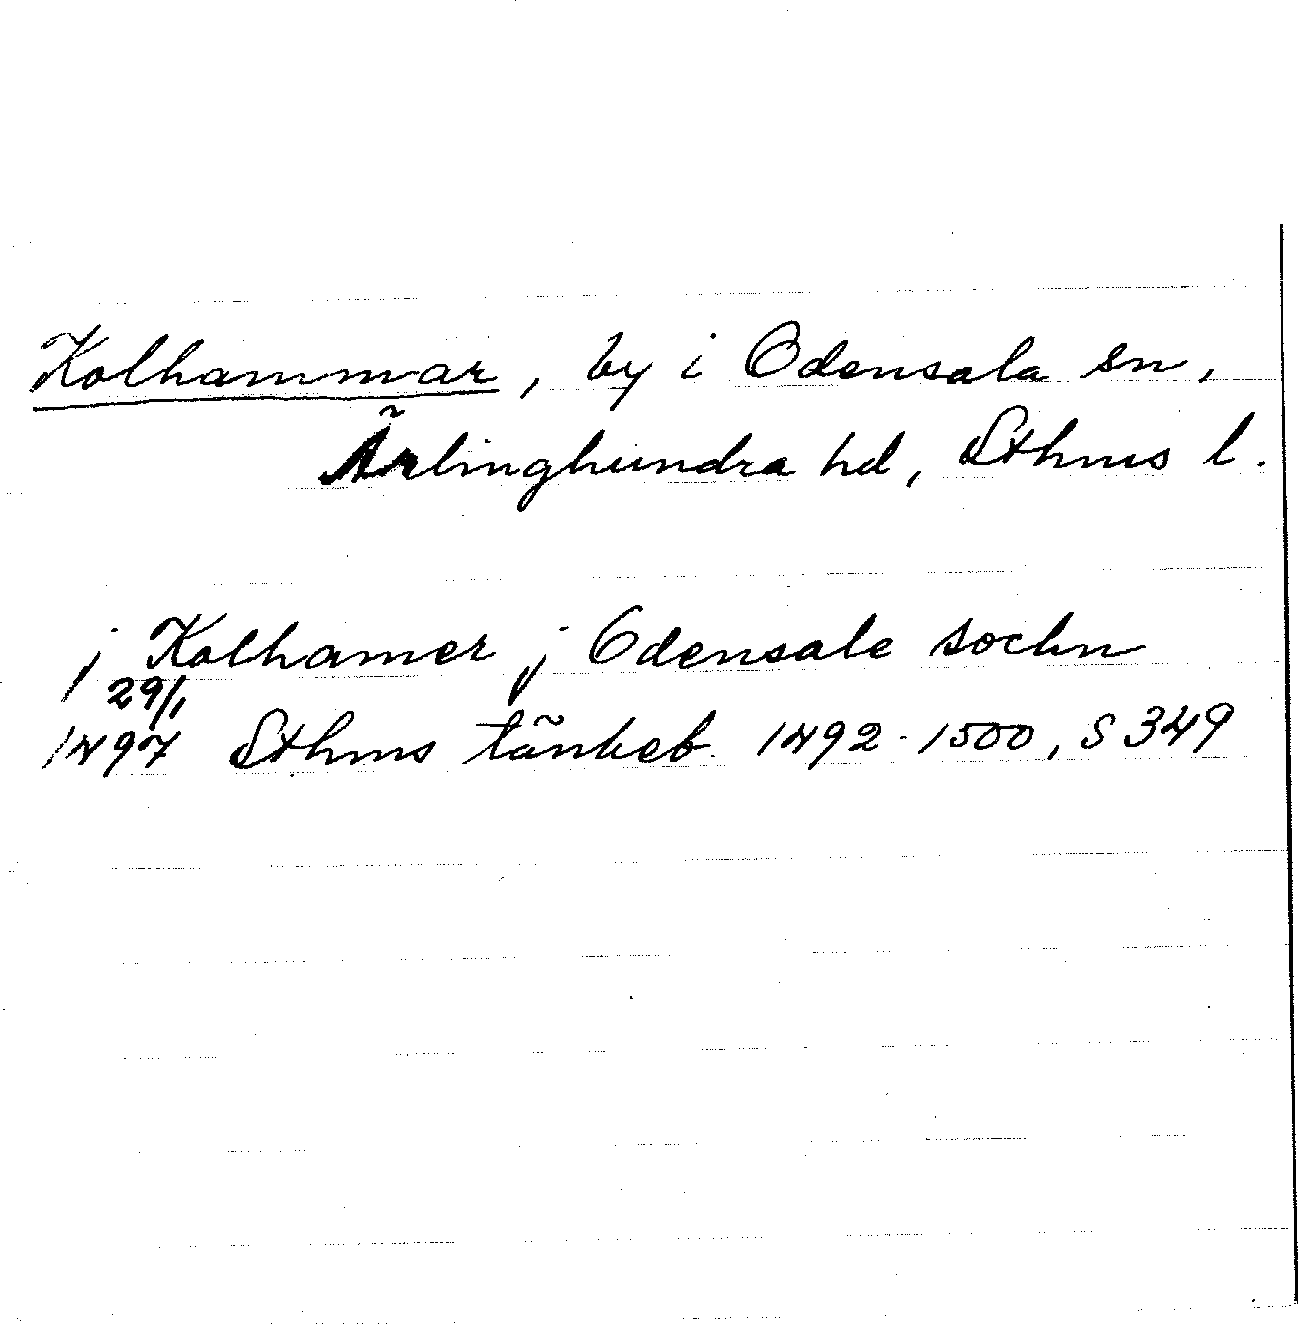 Kolhammar, by i Odensala sn,
Ärlinghundra hd, Sthms l.
j Kolhamer j Odensale sochn
29/1
1497 Sthms tänkeb. 1492-1500, S 349